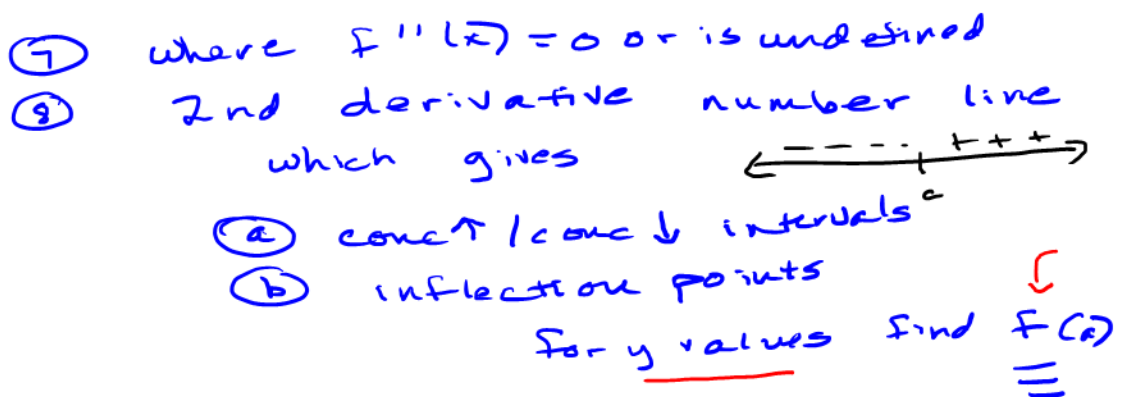 ⑦ where f''(x) = 0 or is undefined
⑧ 2nd derivative number line
which gives - - - - + + +
c
ⓐ conc↑ / conc↓ intervals
ⓑ inflection points
for y values find f(c)